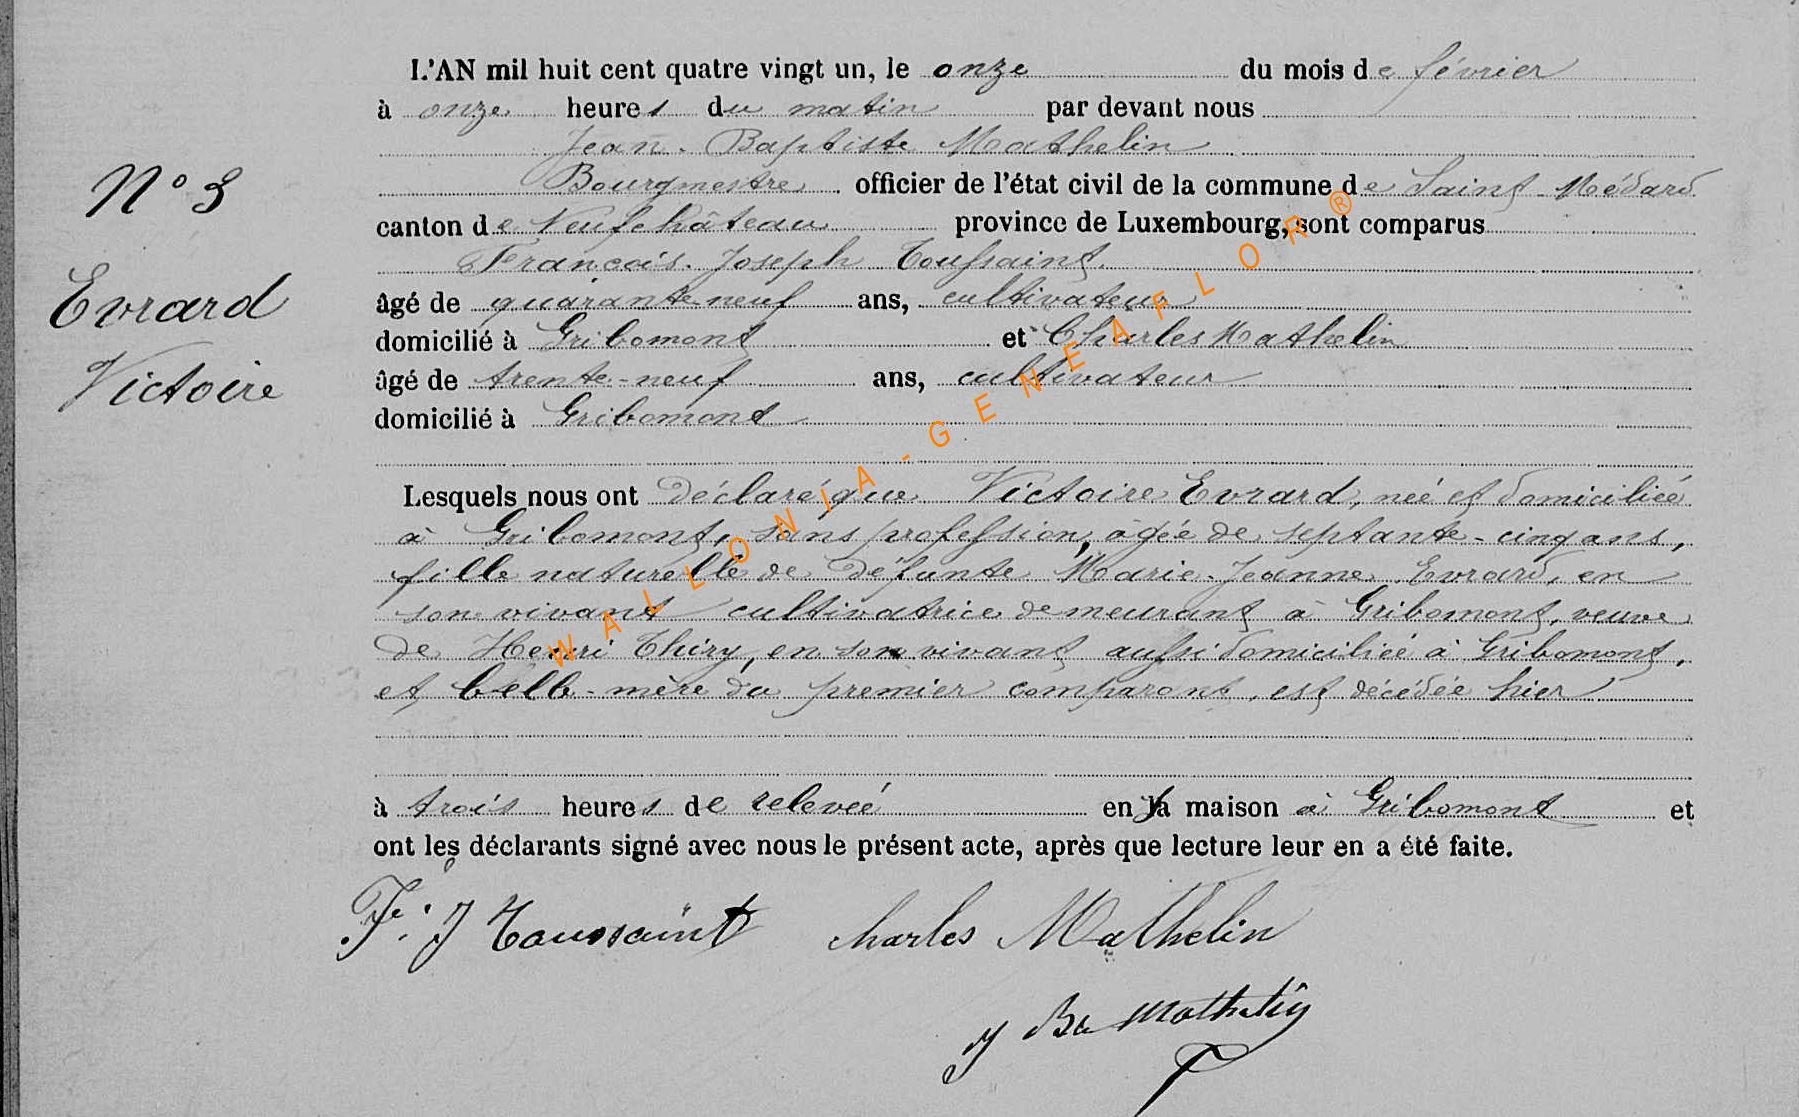 L'AN mil huit cent quatre vingt un, le onze du mois de février
à onze heures du matin par devant nous
Jean-Baptiste Mathelin
Bourgmestre officier de l'état civil de la commune de Saint-Médard
canton de Neufchâteau province de Luxembourg, sont comparus
François-Joseph Toussaint
âgé de quarante-neuf ans, cultivateur
domicilié à Gribomont et Charles Mathelin
âgé de trente-neuf ans, cultivateur
domicilié à Gribomont
N° 3
Evrard
Victoire
Lesquels nous ont déclaré que Victoire Evrard, née et domiciliée
à Gribomont, sans profession, âgée de septante-cinq ans,
fille naturelle de défunte Marie-Jeanne Evrard, en
son vivant cultivatrice demeurant à Gribomont, veuve
de Henri Thiry, en son vivant aussi domiciliée à Gribomont,
et belle-mère du premier comparant, est décédée hier
à trois heures de relevée en sa maison à Gribomont et
ont les déclarants signé avec nous le présent acte, après que lecture leur en a été faite.
F. J Toussaint Charles Mathelin
J Bte Mathelin
WALLONIA-GENEAFLOR®